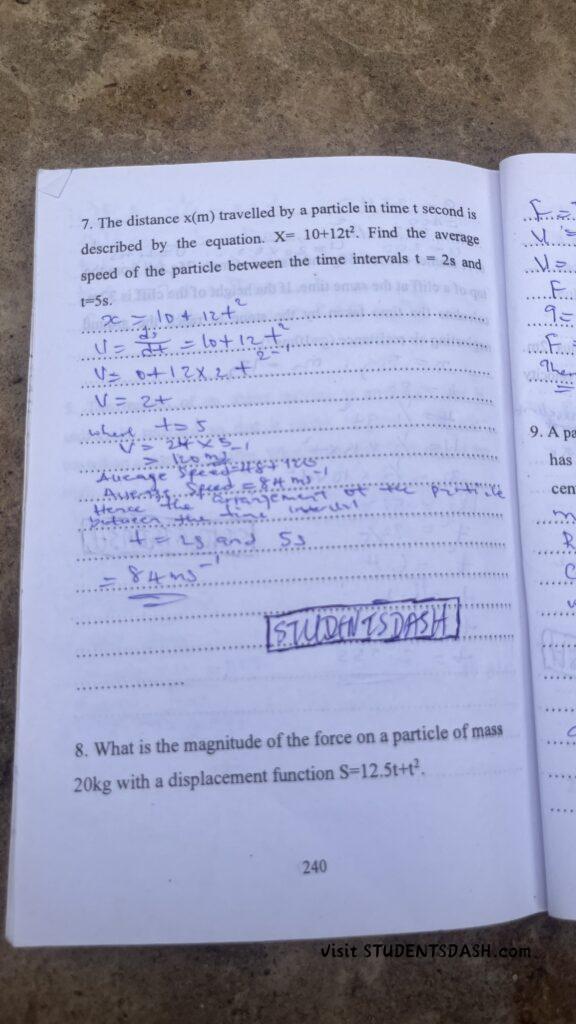 7. The distance x(m) travelled by a particle in time t second is
described by the equation. X= 10+12t². Find the average
speed of the particle between the time intervals t = 2s and
t=5s.
x = 10 + 12t²
V = = 10 + 12t²
V = 0 + 12 x 2 t²⁻¹
V = 2t
when t = 5
V = 24 x 5
= 120 ms⁻¹
Average Speed =
Average Speed = 84 ms⁻¹
Hence the arrangement of the particle
between the time interval
t = 2s and 5s
= 84ms⁻¹
STUDENTSDASH
8. What is the magnitude of the force on a particle of mass
20kg with a displacement function S=12.5t+t².
240
F =
V =
V =
F
9 =
F =
9. A pa
has
cen
m
R
C
Visit STUDENTSDASH.com